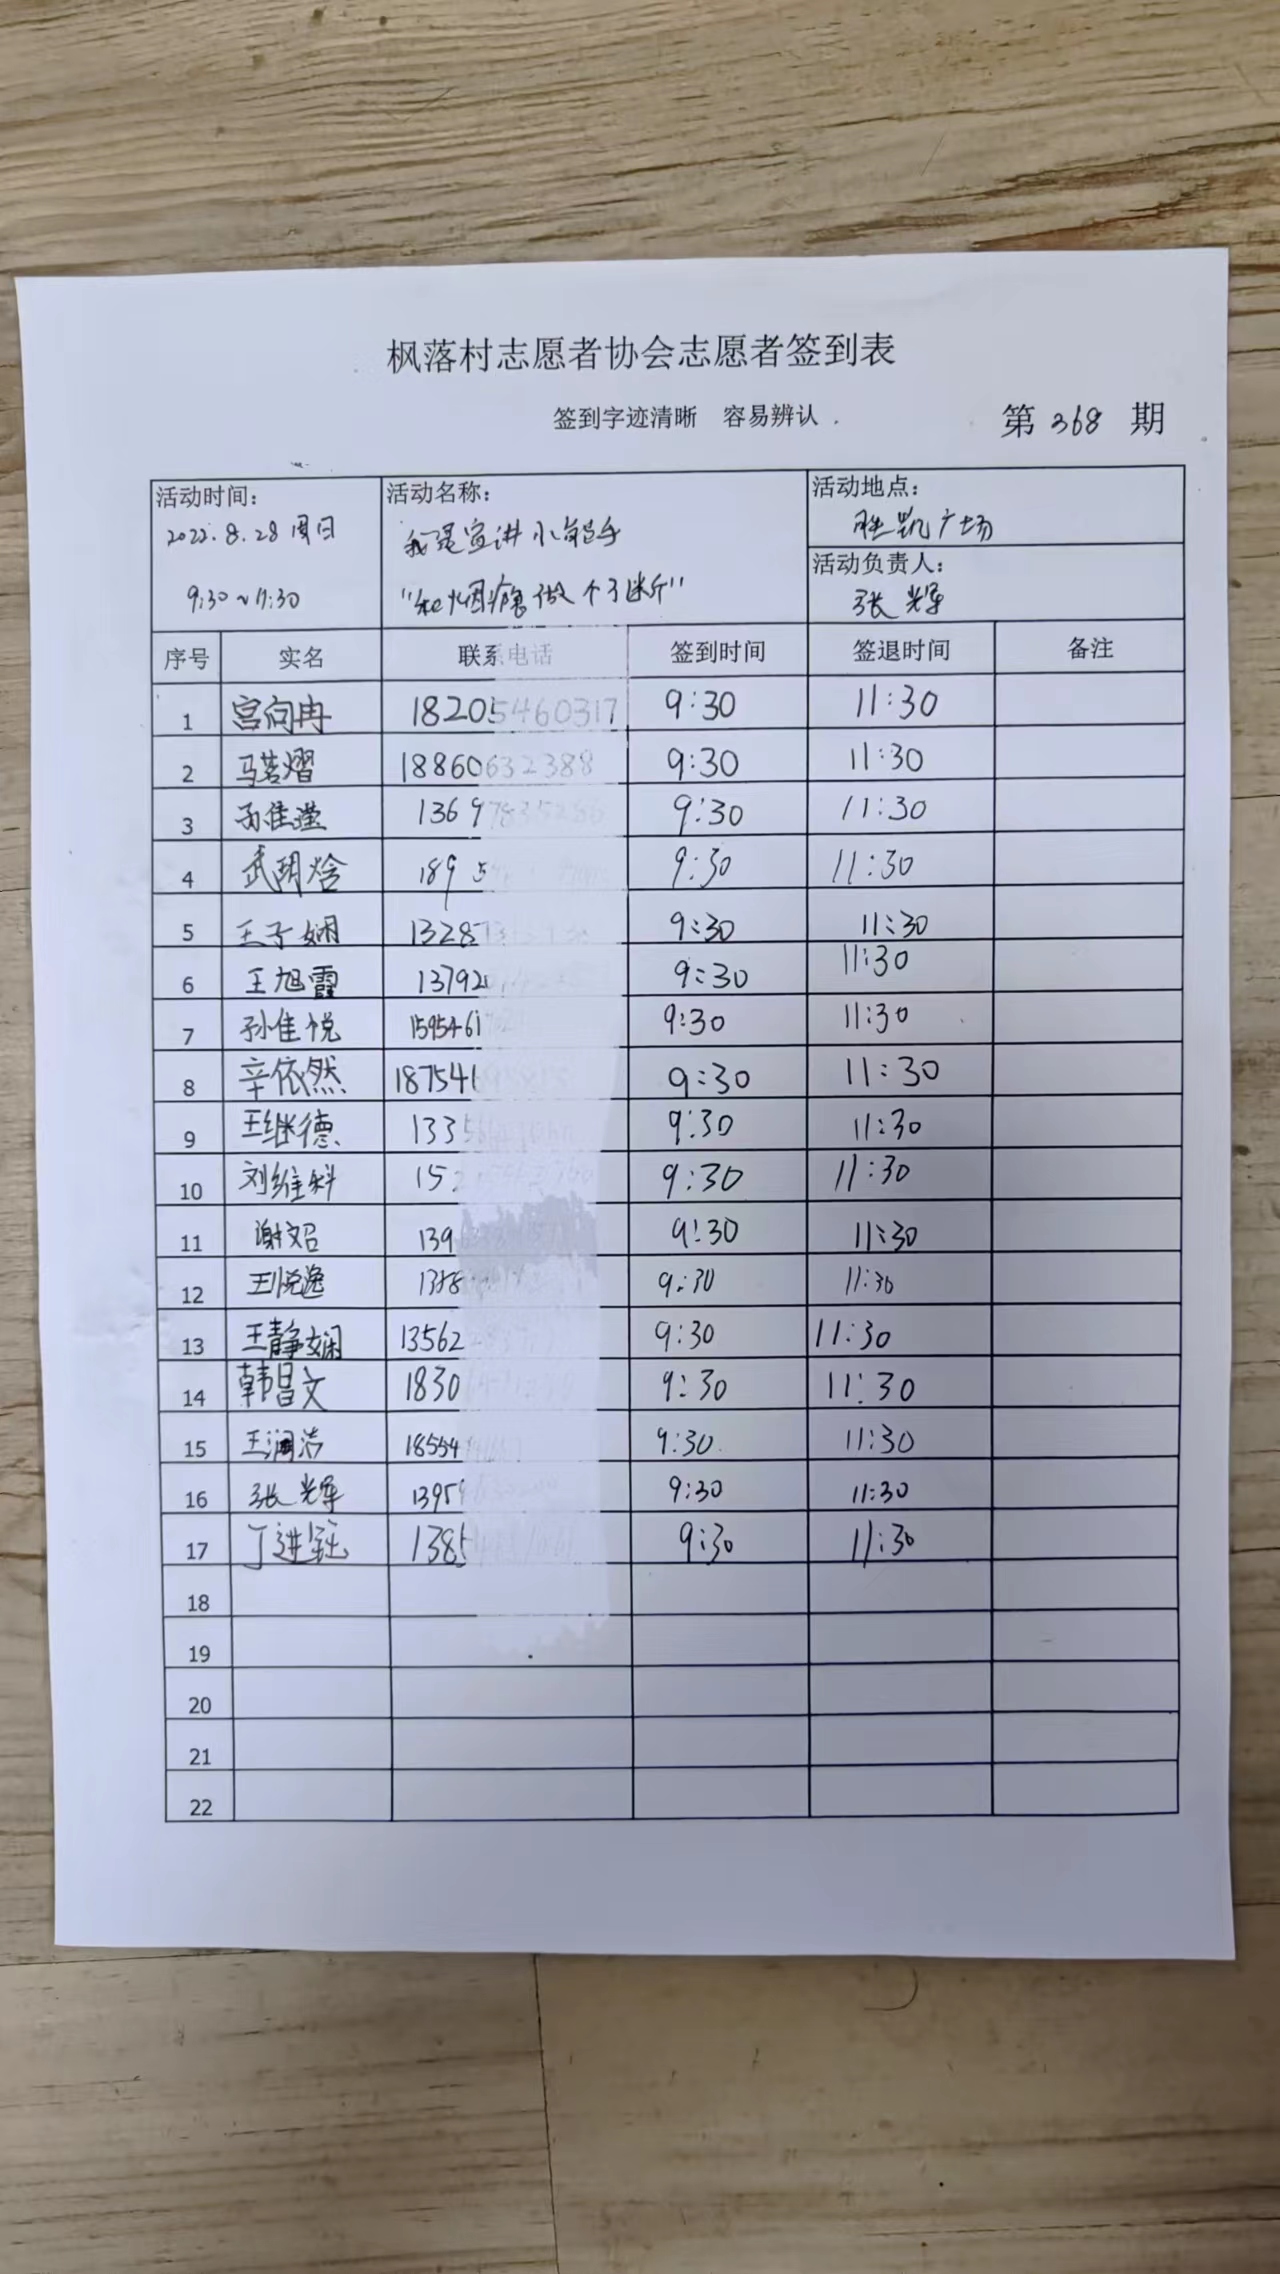 枫落村志愿者协会志愿者签到表
签到字迹清晰 容易辨认
第 368 期
活动时间:
2022.8.28 周日
9:30~11:30
活动名称:
我是宣讲小能手
"和烟瘾做个了断"
活动地点:
胜凯广场
活动负责人:
张辉
序号 实名 联系电话 签到时间 签退时间 备注
1 宫向冉 18205460317 9:30 11:30
2 马若熠 18860632388 9:30 11:30
3 孙佳滢 1369 9:30 11:30
4 武玥焓 1895 9:30 11:30
5 王子娴 13287 9:30 11:30
6 王旭霞 13792 9:30 11:30
7 孙佳悦 1595461 9:30 11:30
8 辛依然 187541 9:30 11:30
9 王继德 133 9:30 11:30
10 刘维科 15 9:30 11:30
11 谢文召 139 9:30 11:30
12 王悦逸 1358 9:30 11:30
13 王静娴 13562 9:30 11:30
14 韩昌文 1830 9:30 11:30
15 王润洁 18554 9:30 11:30
16 张辉 1395 9:30 11:30
17 丁进 1385 9:30 11:30
18
19
20
21
22